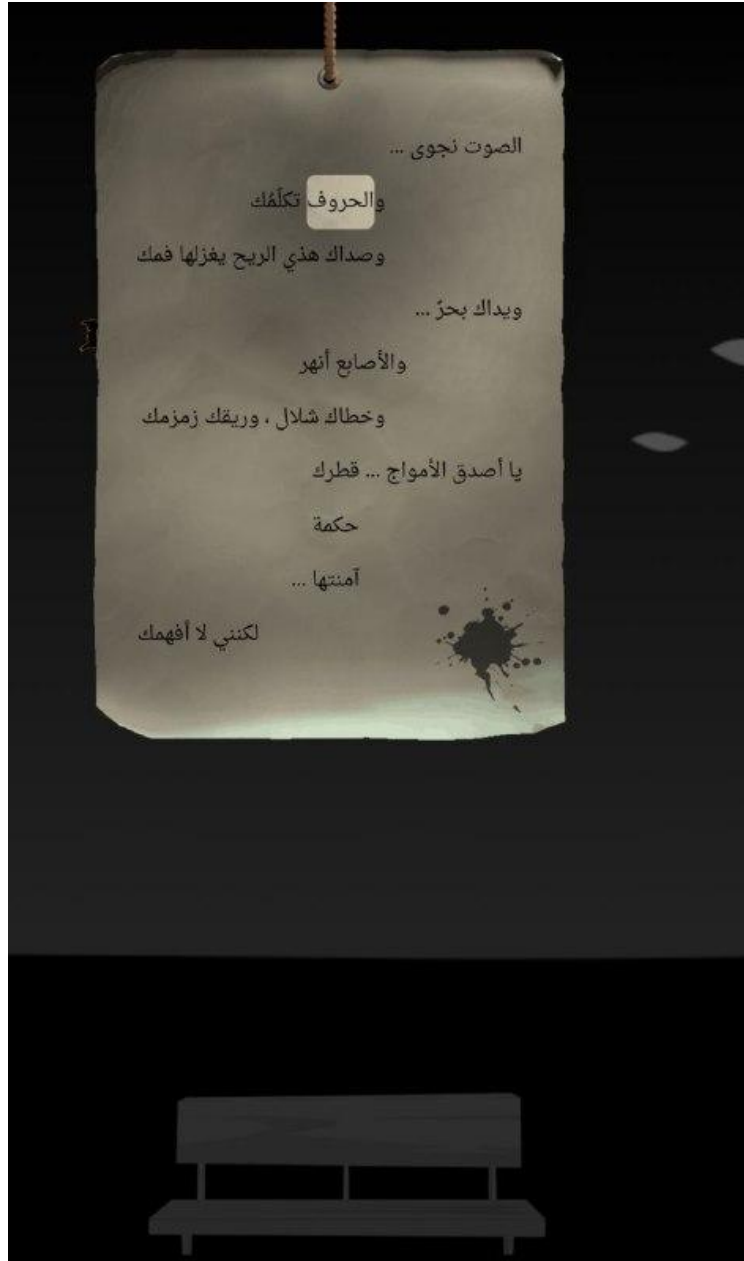 الصوت نجوى ...
والحروف تكلّمُك
وصداك هذي الريح يغزلها فمك
ويداك بحرٌ ...
والأصابع أنهر
وخطاك شلال ، وريقك زمزمك
يا أصدق الأمواج ... قطرك
حكمة
آمنتها ...
لكنني لا أفهمك